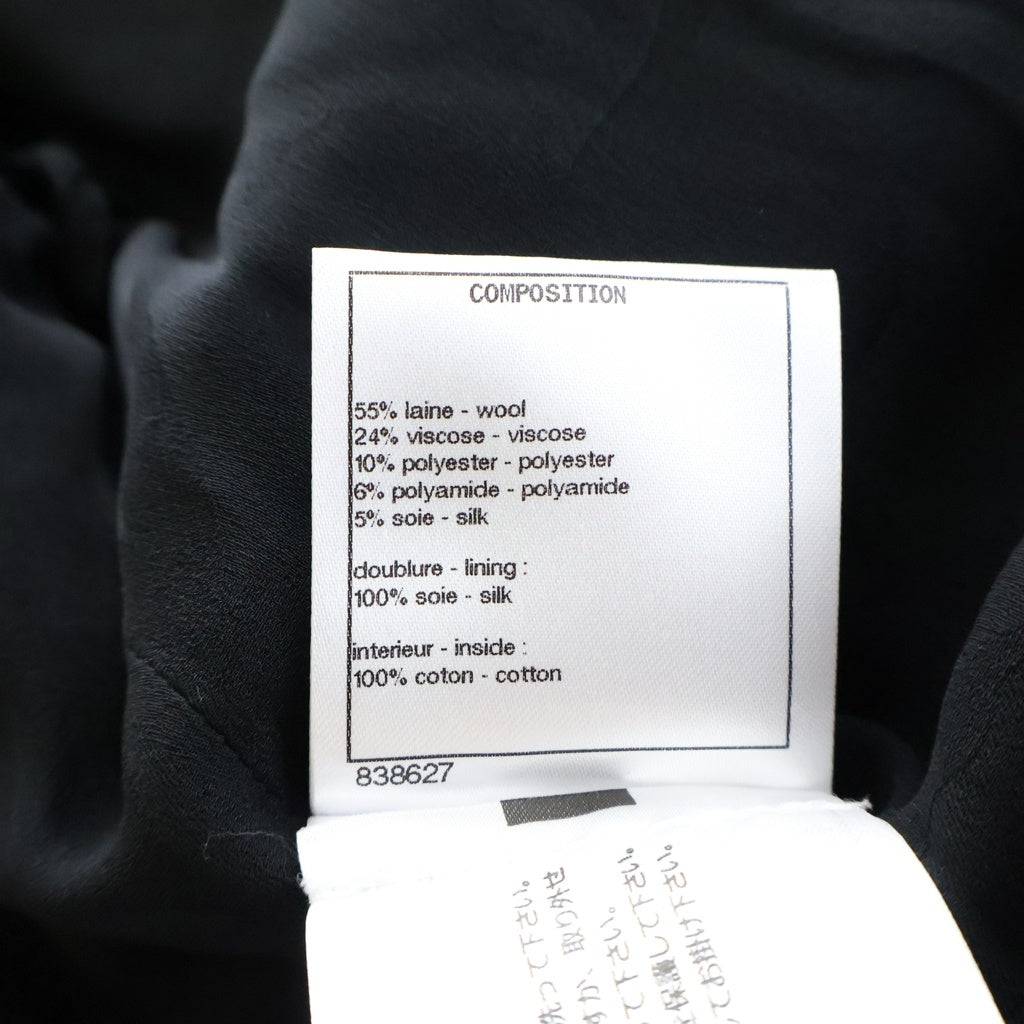 COMPOSITION
55% laine - wool
24% viscose - viscose
10% polyester - polyester
6% polyamide - polyamide
5% soie - silk
doublure - lining :
100% soie - silk
interieur - inside :
100% coton - cotton
838627
てお掛け下さい。
保護して下さい。
て下さい。
すが、取り外せ
洗って下さい。